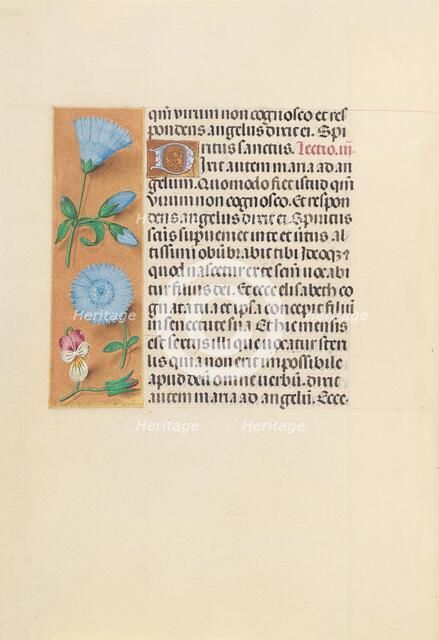 qm̄ virum non cognosco et res
pondens angelus dixit ei. Spi
ritus sanctus. Lectio. iii.
Dixit autem maria ad an
gelum. Quomodo fiet istud qm̄
virum non cognosco. Et respon
dens angelus dixit ei. Spiritus
sc̄ūs superveniet in te et virtus al
tissimi obūbrabit tibi Ideoqꝫ et
quod nascetur ex te sc̄m vocabi
tur filius dei. Et ecce elisabeth co
gnata tua et ipsa concepit filiū
in senectute sua Et hic mensis
est sextus illi que vocatur steri
lis quia non erit impossibile
apud deū omne verbū. dixit
autem maria ad angelū. Ecce
Heritage Heritage
Heritage Heritage
Heritage Heritage